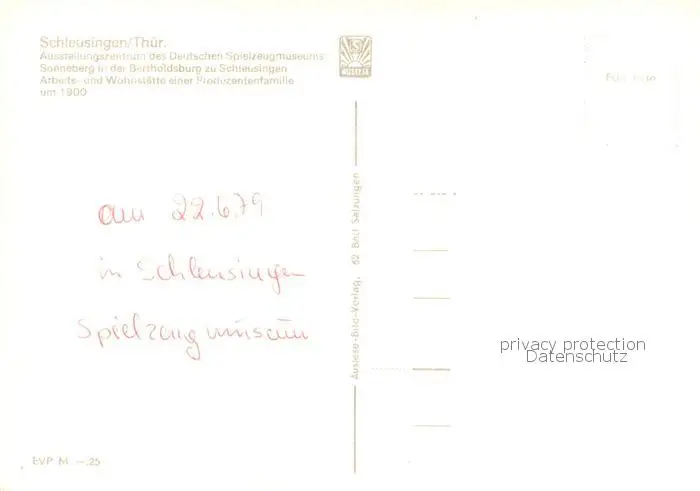 Schleusingen/Thür.
Ausstellungszentrum des Deutschen Spielzeugmuseums
Sonneberg in der Bertholdsburg zu Schleusingen
Arbeits- und Wohnstätte einer Produzentenfamilie
um 1900
am 22.6.79
in Schleusingen
Spielzeugmuseum
Auslese-Bild-Verlag, 62 Bad Salzungen
privacy protection
Datenschutz
EVP M -.25